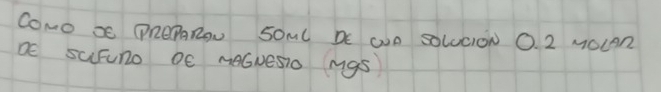 COMO SE PREPARAN 50ML DE UNA SOLUCION 0.2 MOLAR
DE SULFURO DE MAGNESIO (MgS)